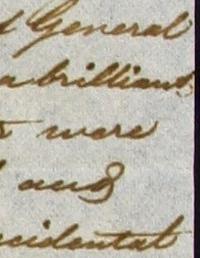 General
a brilliant
were
and
ccidental